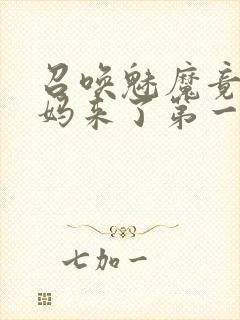 召唤魅魔竟
妈来了第一
七加一